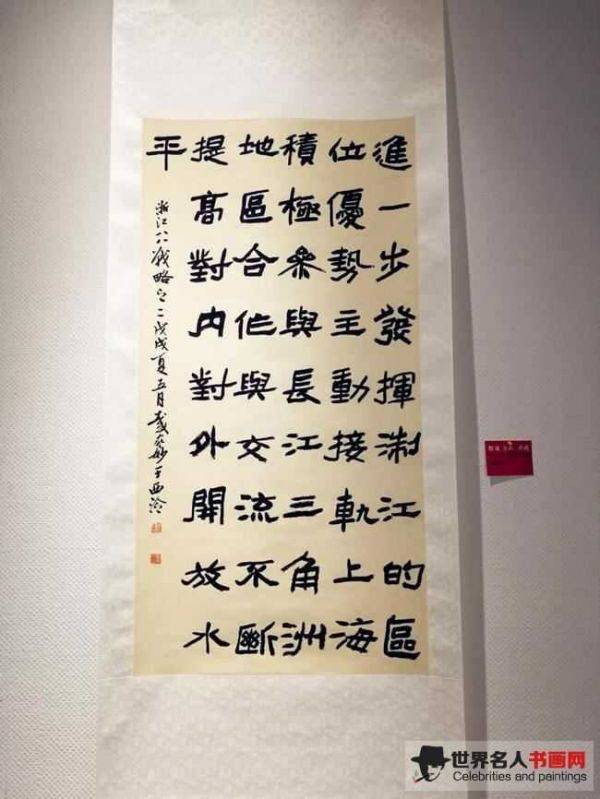 進一步發揮淛江的區
位優勢主動接軌上海
積極參與長江三角洲
地區合作與交流不斷
提高對內對外開放水
平
浙江八八戰略之二戊戌夏五月戴家妙于西泠
世界名人书画网
Celebrities and paintings